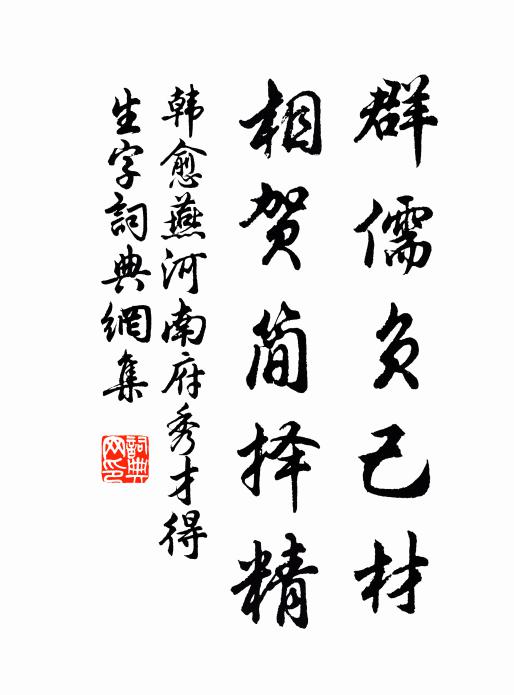 群儒负己材
相贺简择精
韩愈燕河南府秀才得
生字詞典網集
詞典网印